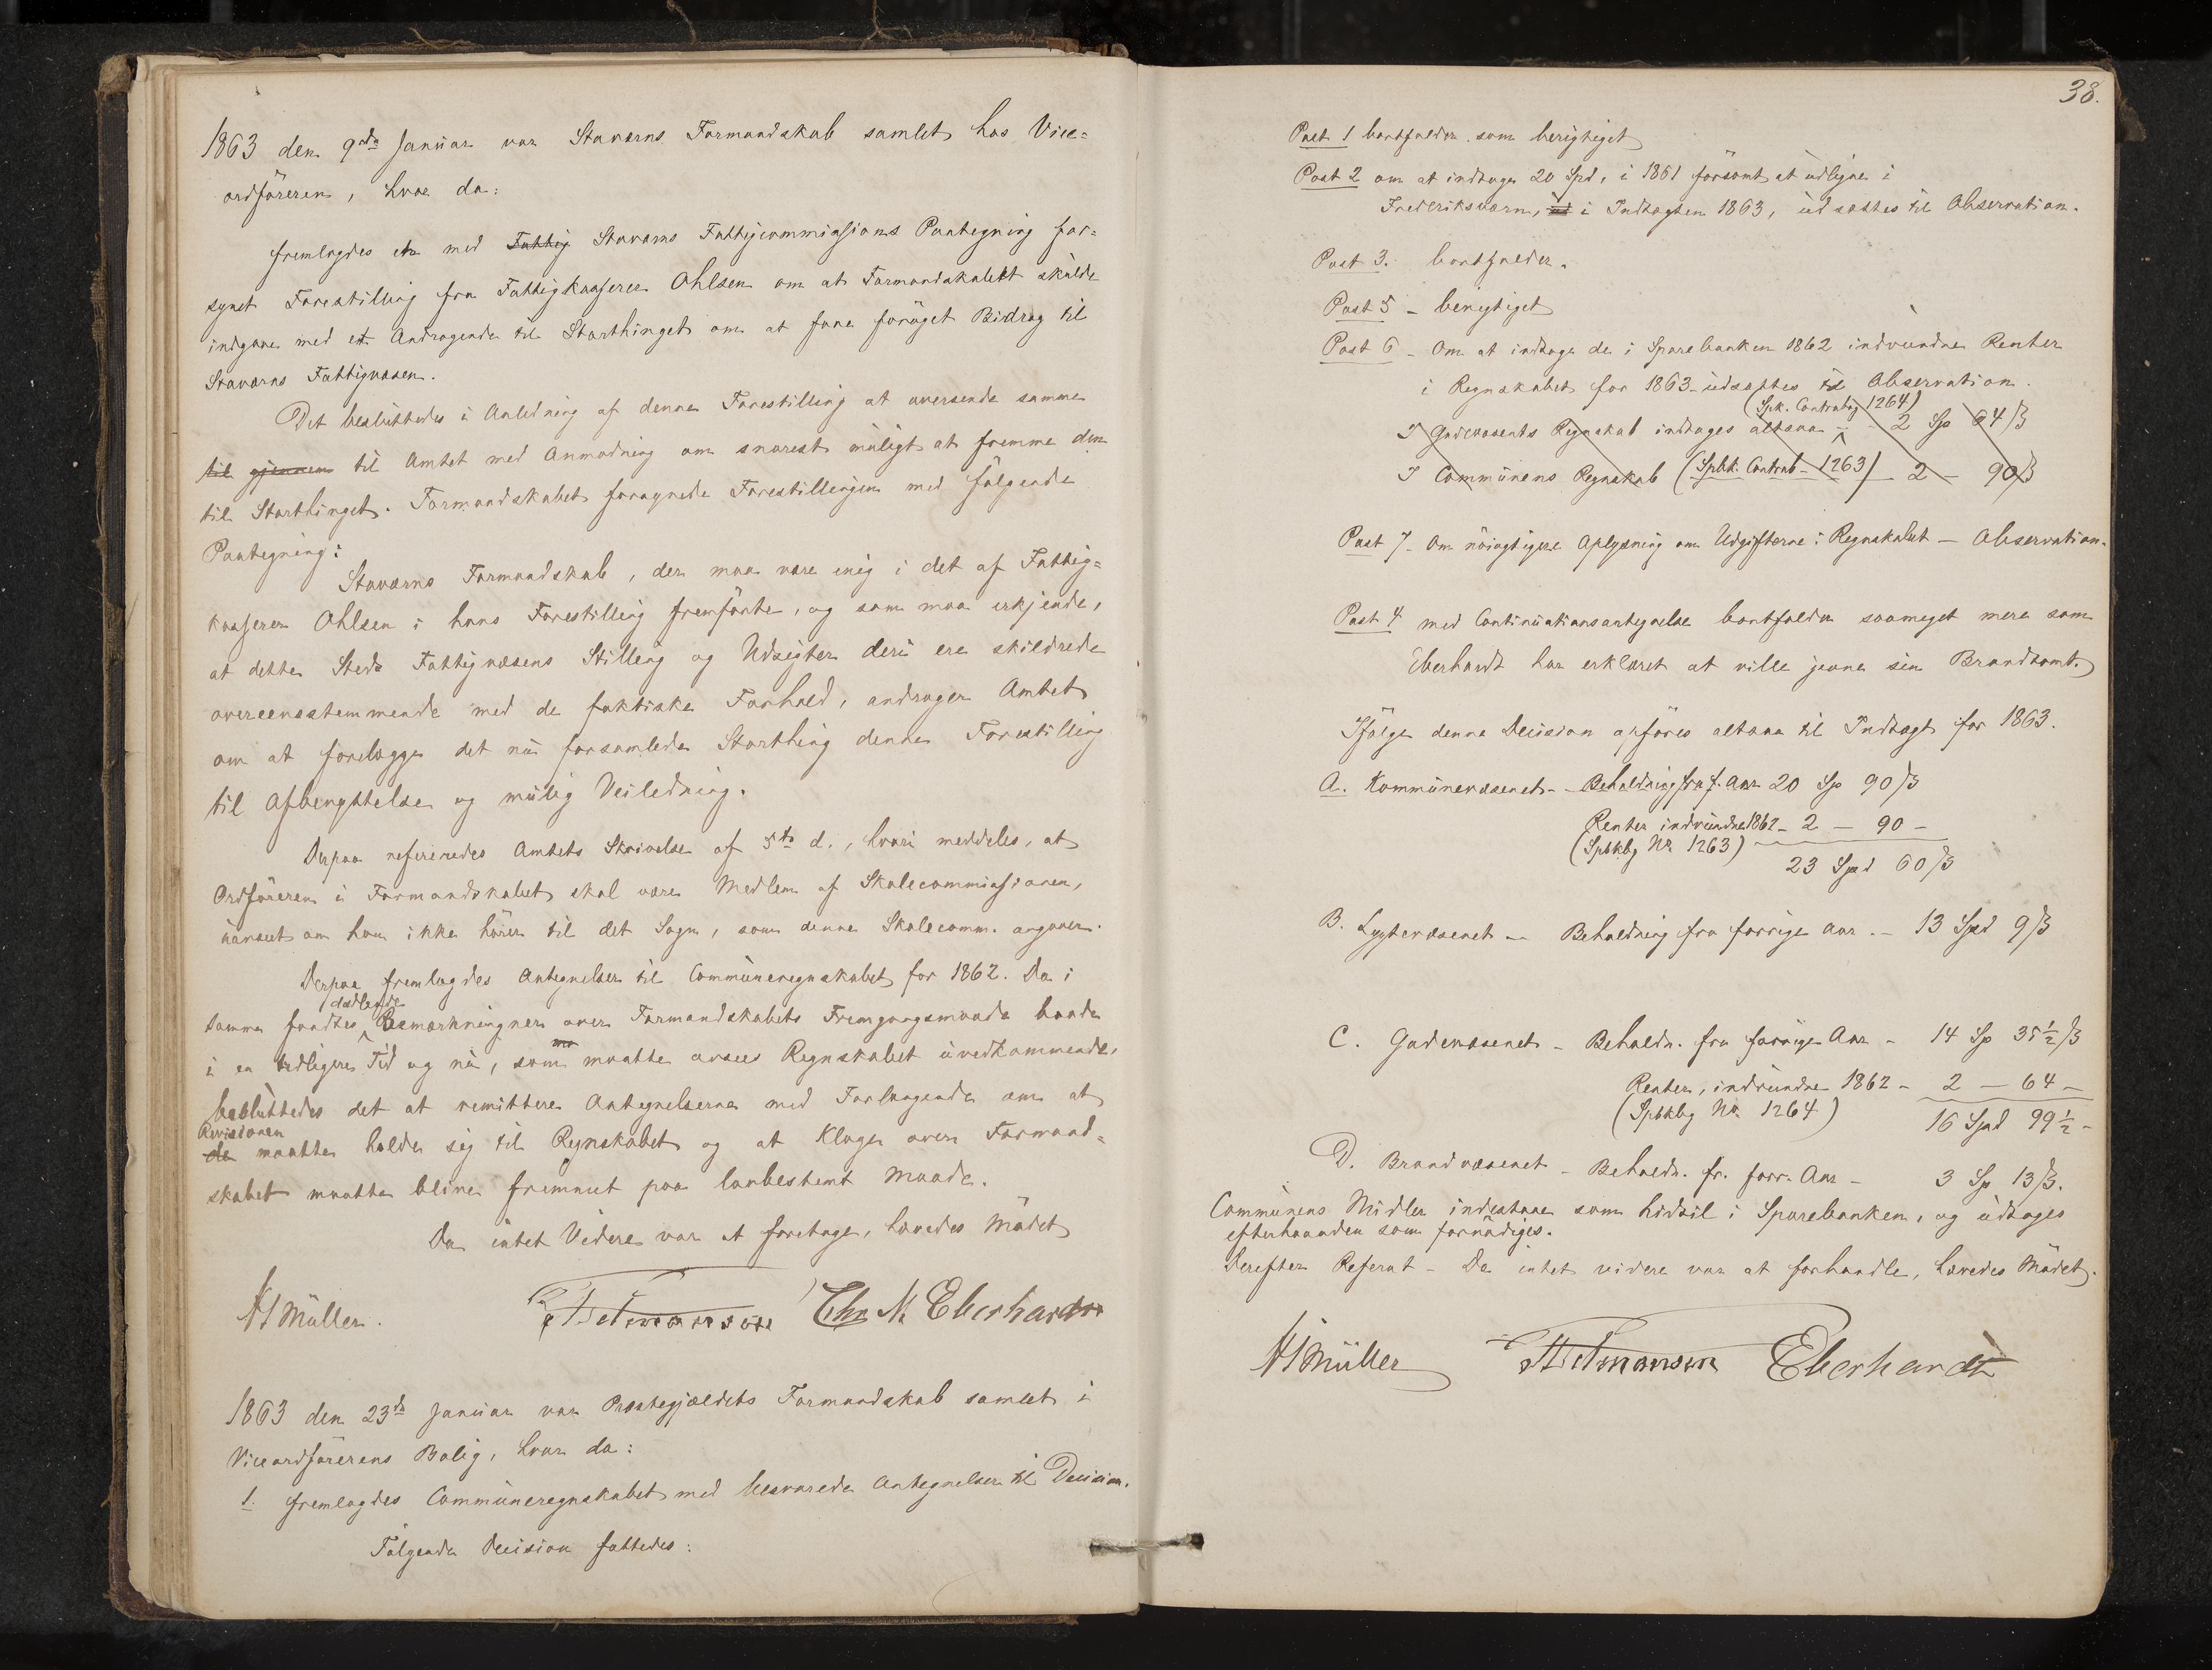 1863 den 9de Januar var Staværns Formandskab samlet hos Vice=
ordföreren, hvor da:
fremlagdes en med Fattig Staværns Fattigcommissions Paategning for=
synet Forestilling fra Fattigkasserer Ohlsen om at Formandskabet skulde
indgaae med et Andragende til Storthinget om at faae foröget Bidrag til
Staværns Fattigvæsen.
Det besluttedes i Anledning af denne Forestilling at oversende samme
til gjennem til Amtet med Anmodning om snarest muligt at fremme den
til Storthinget. Formandskabet forsynede Forestillingen med fölgende
Paategning:
Staværns Formandskab, der maa være enig i det af Fattig=
kasserer Ohlsen i hans Forestilling fremförte, og som maa erkjende,
at dette Steds Fattigvæsens Stilling og Udsigter deri ere skildrede
overeensstemmende med de faktiske Forhold, andrager Amtet
om at forelægge det nu forsamlede Storthing denne Forestilling
til Afbenyttelse og mulig Veiledning.
Derpaa refereredes Amtets Skrivelse af 5te d., hvori meddeles, at
Ordföreren i Formandskabet skal være Medlem af Skolecommissionen,
uanseet om han ikke hörer til det Sogn, som denne Skolecomm. angaaer.
Derpaa fremlagdes Antegnelser til Communeregnskabet for 1862. Da i
dadlende
samme fandtes Bemærkninger over Formandskabets Fremgangsmaade baade
i en tidligere Tid og nu, som maatte ansees Regnskabet uvedkommende,
besluttedes det at remittere Antegnelserne med Forlangende om at
Revisionen
de maatte holde sig til Regnskabet og at Klage over Formand=
skabet maatte blive fremmet paa lovbestemt Maade.
Da intet Videre var at foretage, hævedes Mödet
Müller. Chr M Eberhardt
1863 den 23de Januar var Præstegjældets Formandskab samlet i
Viceordförerens Bolig, hvor da:
1. fremlagdes Communeregnskabet med besvarede Antegnelser til Decision.
Fölgende Decision fattedes:
38.
Post 1 bortfalder som berigtiget
Post 2 om at indtage 20 Spd, i 1861 forsömt at udligne i
Frederiksværn, ud i Indtægten 1863, udsættes til Observation.
Post 3. bortfalder.
Post 5 - berigtiget
Post 6 - Om at indtage de i Sparebanken 1862 indvundne Renter
i Regnskabet for 1863 - udsættes til Observation.
(Spk. Contrabog 1264)
I Gadevæsenets Regnskab indtages altsaa - 2 Sp 64 ß
I Communens Regnskab (Spbk. Contrab - 1263) - 2 - 90 ß
Post 7 - Om nöiagtigere Oplysning om Udgifterne i Regnskabet - Observation.
Post 4 med Continuationsantegnelse bortfalder saameget mere som
Eberhardt har erklæret at ville jevne sin Brandtomt.
Ifölge denne Decision opföres altsaa til Indtægt for 1863.
A. Kommunevæsenet - Beholdning fra f. Aar 20 Sp 90 ß
Renter indvundne 1862 - 2 - 90 -
(Spbkbg Nr 1263)
23 Spd 60 ß
B. Lygtevæsenet - Beholdning fra forrige Aar. - 13 Spd 9 ß
C. Gadevæsenet - Beholdn. fra forrige Aar - 14 Sp 35½ ß
Renter, indvundne 1862 - 2 - 64 -
(Spbkbg Nr. 1264)
16 Spd 99½ -
D. Brandvæsenet - Beholdn. fr. forr. Aar - 3 Sp 13 ß.
Communens Midler indestaae som hidtil i Sparebanken, og udtages
efterhaanden som fornödiges.
Derefter Referat - Da intet videre var at forhandle, hævedes Mödet.
Müller Eberhardt